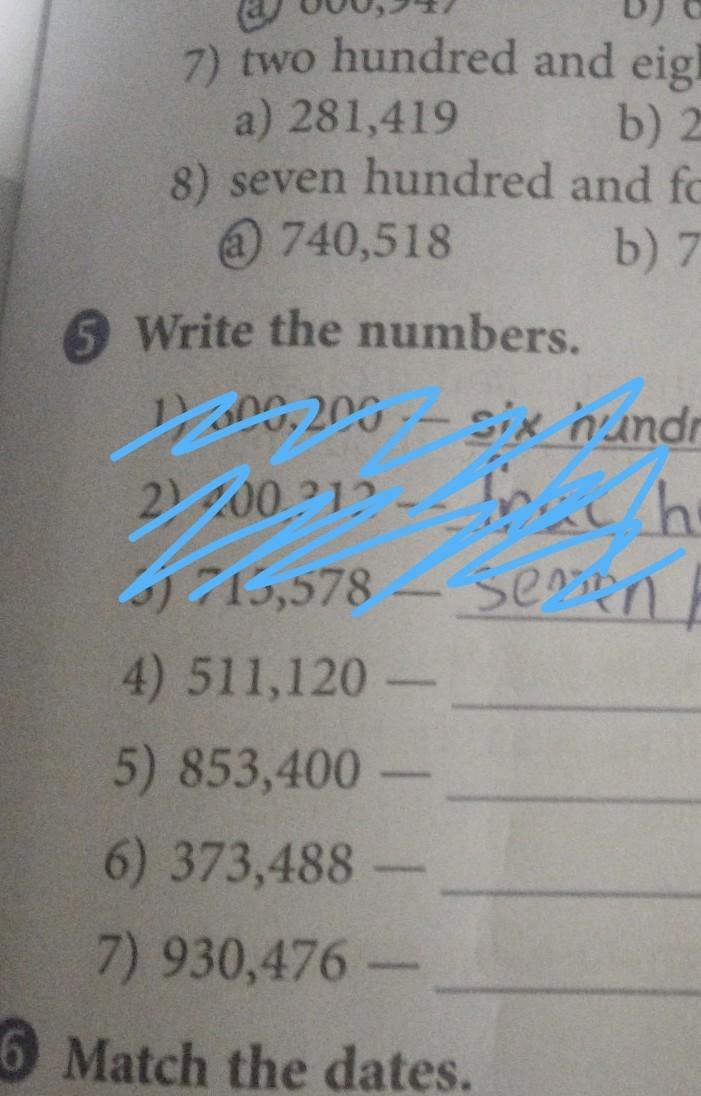 7) two hundred and
a) 281,419 b) 2
8) seven hundred and
a) 740,518 b) 7
5 Write the numbers.
1) 600,200 — six hundr
2) 400,312 —
3) 715,578 —
4) 511,120 —
5) 853,400 —
6) 373,488 —
7) 930,476 —
6 Match the dates.